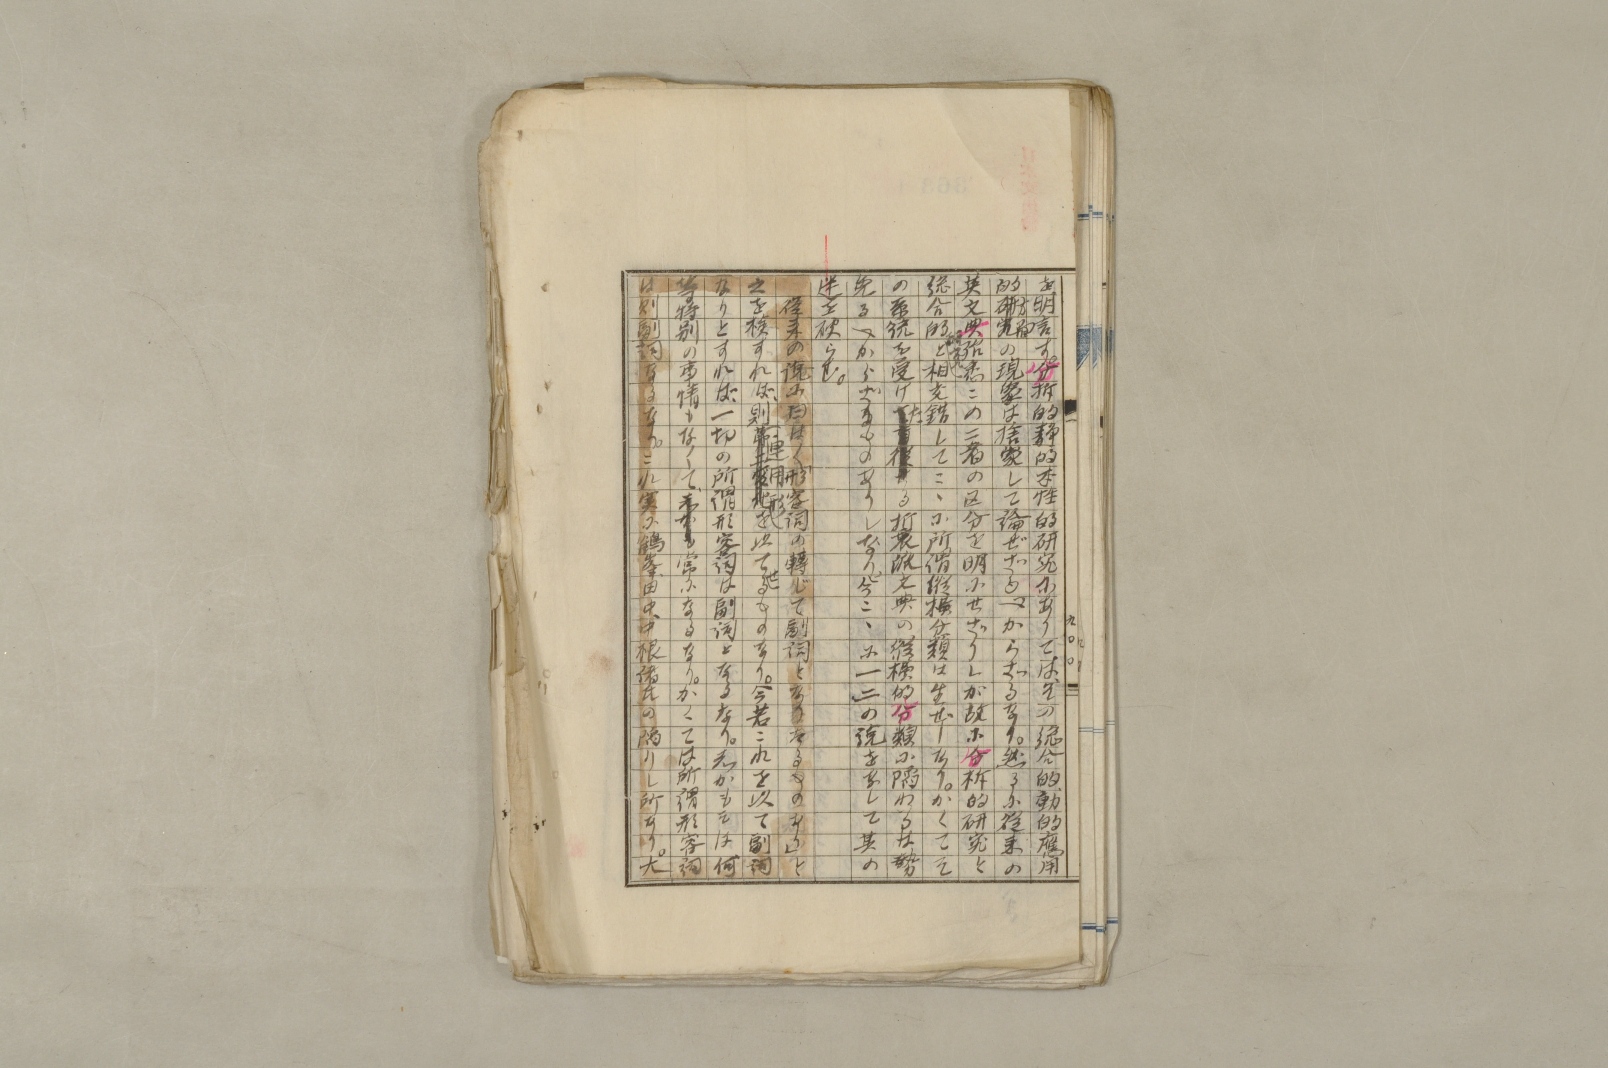 を明言す。分析的静的本性的研究にありては、先の綜合的動的応用
的方面の現象は捨象して論ぜざるべからざるなり。然るに従来の
英文典始者この二者の区分を明にせざりしが故に分析的研究と
綜合的と相交錯してこゝに所謂縦横分類は生ぜしなり。かくてそ
の系統を受けたる折衷派文典の縦横的分類に陥れるは勢
免るべからざるものありしなり。今こゝに一二の説をあげて其の
迷を破らむ。
従来の説に曰はく「形容詞の転じて副詞となるなるものあり」と
之を検すれば、則連用形を以てせるものなり。今若これを以て副詞
なりとすれば、一切の所謂形容詞は副詞となるなり。しかもそは何
等特別の事情もなくて、しかも常になるなり。かくては所謂形容詞
は則副詞なるなり。これ実に鶴峯、田中、中根諸氏の陥りし所なり。大
九〇〇